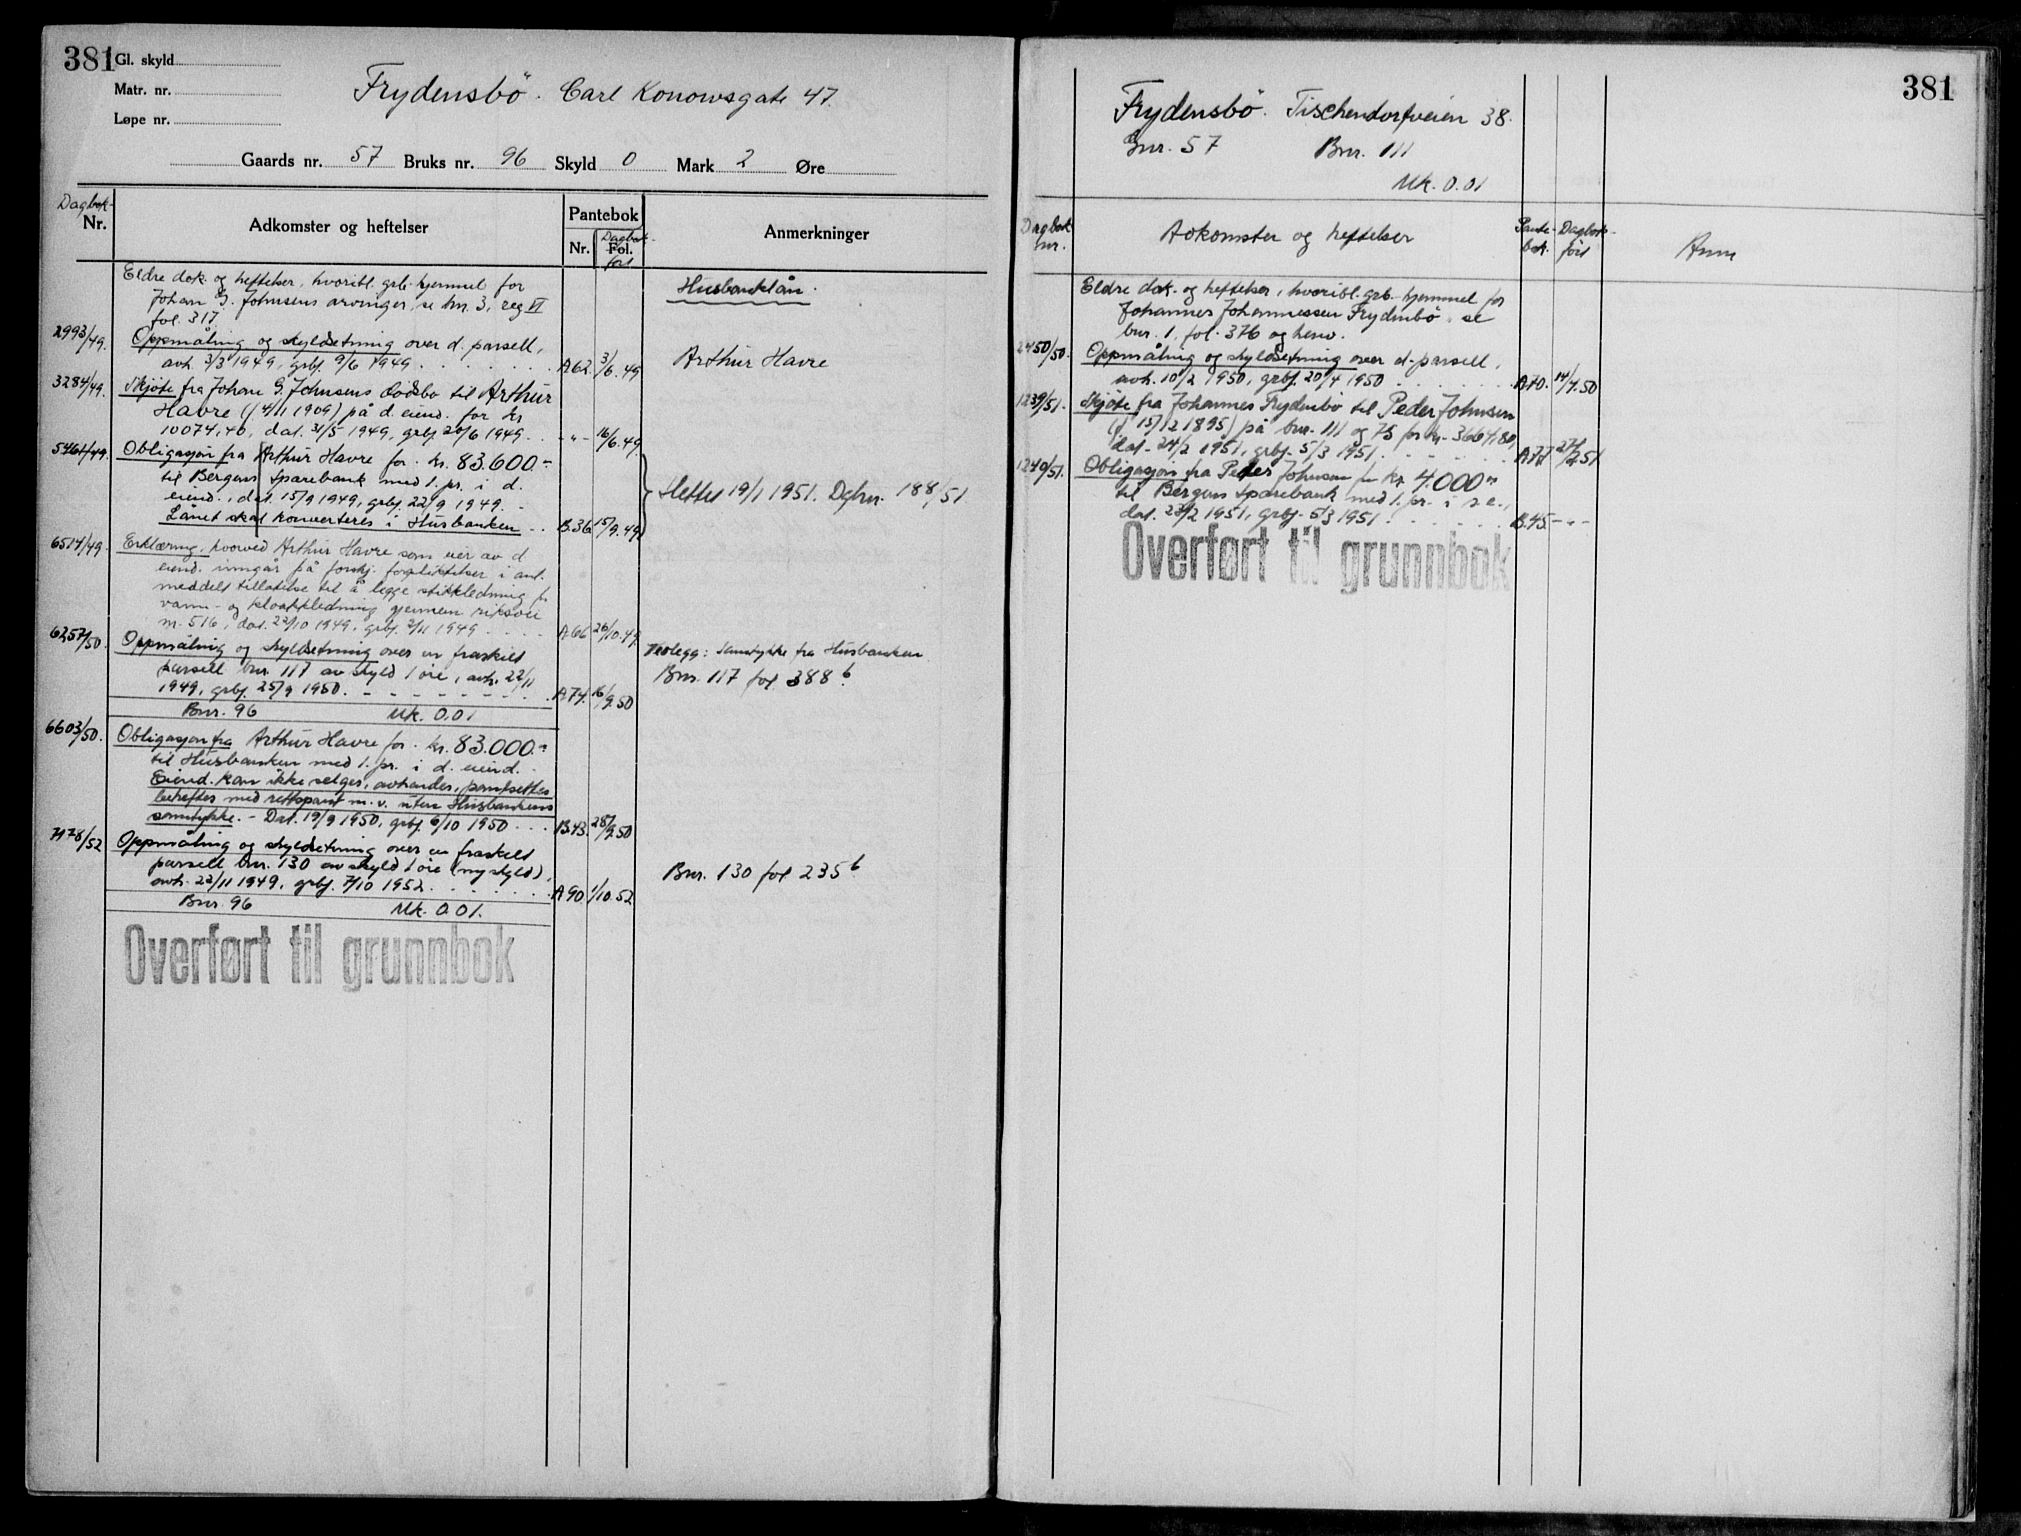 381
Gl. skyld
Matr. nr.
Løpe nr.
Frydensbö. Carl Konowsgate 47.
Gaards nr. 57 Bruks nr. 96 Skyld 0 Mark 2 Øre
Dagbok-
Nr.
Adkomster og heftelser
Pantebok
Nr.
Dagbok-
Fol.
ført
Anmerkninger
Eldre dok. og heftelser, hvoribl. grb. hjemmel for
Johan G. Johnsens arvinger, se bnr. 3, reg VI
fol. 317.
Husbanklån.
2993/49. Oppmåling og skyldsetning over d. parsell,
avh. 3/3 1949, grbf. 9/6 1949 A62. 3/6.49
Arthur Havre
3284/49. Skjøte fra Johan G. Johnsens dødsbo til Arthur
Havre (f 4/11 1909) på d. eiend. for kr
10074,40, dat. 31/5 1949, grbf 20/6 1949. - " - 16/6.49.
5461/49. Obligasjon fra Arthur Havre for kr. 83.600.-
til Bergens Sparebank med 1. pr. i d.
eiend., dat. 15/9 1949, grbf. 22/9 1949.-
Lånet skal konverteres i Husbanken B.36. 15/9.49.
Slettet 19/1 1951. Dgbnr. 188/51
6517/49. Erklæring, hvorved Arthur Havre som eier av d
eiend. inngår på forskj. forpliktelser i anl.
meddelt tillatelse til å legge stikkledning for
vann- og kloakkledning gjennem riksvei
nr. 516, dat. 22/10 1949, grbf. 2/11 1949 A66. 26/10.49.
6257/50. Oppmåling og skyldsetning over en fraskilt
parsell bnr. 117 av skyld 1 øre, avh. 22/11
1949, grbf. 25/9 1950. A74. 16/9.50
Vedlegg: Samtykke fra Husbanken
Bnr. 117 fol. 388 b.
Bnr. 96 Mk. 0.01
6603/50. Obligasjon fra Arthur Havre for kr. 83.000.-
til Husbanken med 1. pr. i d. eiend.
Eiend. kan ikke selges, avhendes, pantsettes
beheftes med rettspant m.v. uten Husbankens
samtykke. - Dat. 19/9 1950, grbf. 6/10 1950 B43. 28/9.50
7178/52 Oppmåling og skyldsetning over en fraskilt
parsell bnr. 130 av skyld 1 øre (ny skyld),
avh. 22/11 1949, grbf. 7/10 1952 A90. 1/10.52
Bnr. 130 fol 235 b
Bnr. 96 Mk. 0.01.
Overført til grunnbok
381
Frydensbö. Tischendorfveien 38.
Gnr. 57 Bnr. 111
Mk. 0.01
Dagbok
nr.
Adkomster og heftelser
Pante-
bok.
Dagbok-
ført
Anm
Eldre dok. og heftelser, hvoribl. grb. hjemmel for
Johannes Johannessen Frydenbö, se
bnr. 1, fol. 376 og henv.
2450/50. Oppmåling og skyldsetning over d. parsell,
avh. 10/2 1950, grbf. 20/4 1950 A70. 14/4.50
1239/51. Skjøte fra Johannes Frydenbö til Peder Johnsen
(f 15/12 1895) på bnr. 111 og 75 for kr. 3664,80,
dat. 24/2 1951, grbf. 5/3 1951 A77. 27/2.51
1240/51. Obligasjon fra Peder Johnsen for kr 4.000.-
til Bergens Sparebank med 1. pr. i s.e.,
dat. 28/2 1951, grbf. 5/3 1951. B.45 - " -
Overført til grunnbok